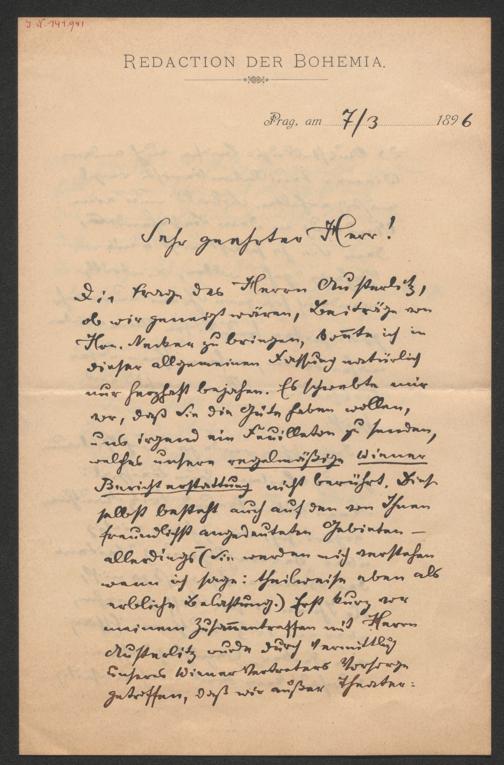 J. N. 141.941
REDACTION DER BOHEMIA.
Prag, am 7/3 1896
Sehr geehrter Herr!
Die Frage des Herrn Austerlitz,
ob wir geneigt wären, Beiträge von
Hrn. Necker zu bringen, konnte ich in
dieser allgemeinen Fassung natürlich
nur herzhaft bejahen. Es schwebte mir
vor, daß Sie die Güte haben wollen,
uns irgend ein Feuilleton zu senden,
welches unsere regelmäßige Wiener
Berichterstattung nicht berührt. Diese
selbst besteht auch auf den von Ihnen
freundlichst angedeuteten Gebieten –
allerdings (Sie werden mich verstehen
wenn ich sage: theilweise eben als
erbliche Belastung.) Erst kurz vor
meinem Zusammentreffen mit Herrn
Austerlitz wurde durch Vermittlg
unseres Wiener Vertreters Vorsorge
getroffen, daß wir außer Theater=